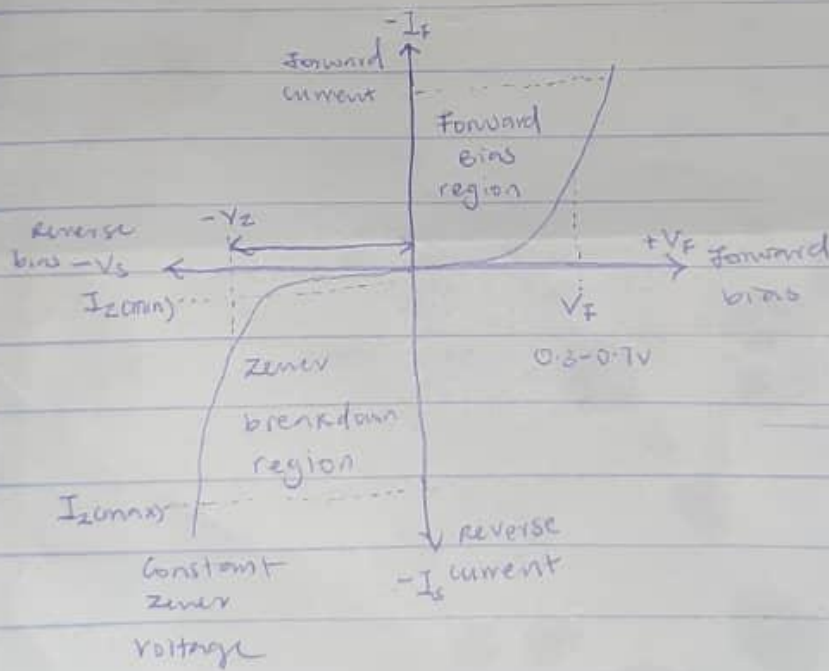 -I_F
Forward
current
Forward
Bias
region
-V_Z
Reverse
bias -V_S
+V_F Forward
bias
I_Z(min)
V_F
0.3-0.7V
Zener
breakdown
region
I_Z(max)
Reverse
current
-I_S
Constant
Zener
voltage